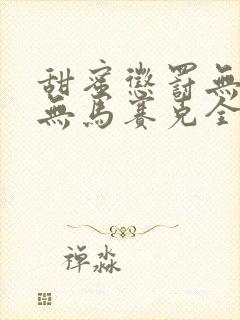 甜蜜懲罰無
無馬賽克全
禪淼